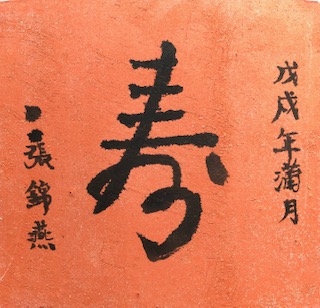 戊戌年滿月
寿
張錦燕